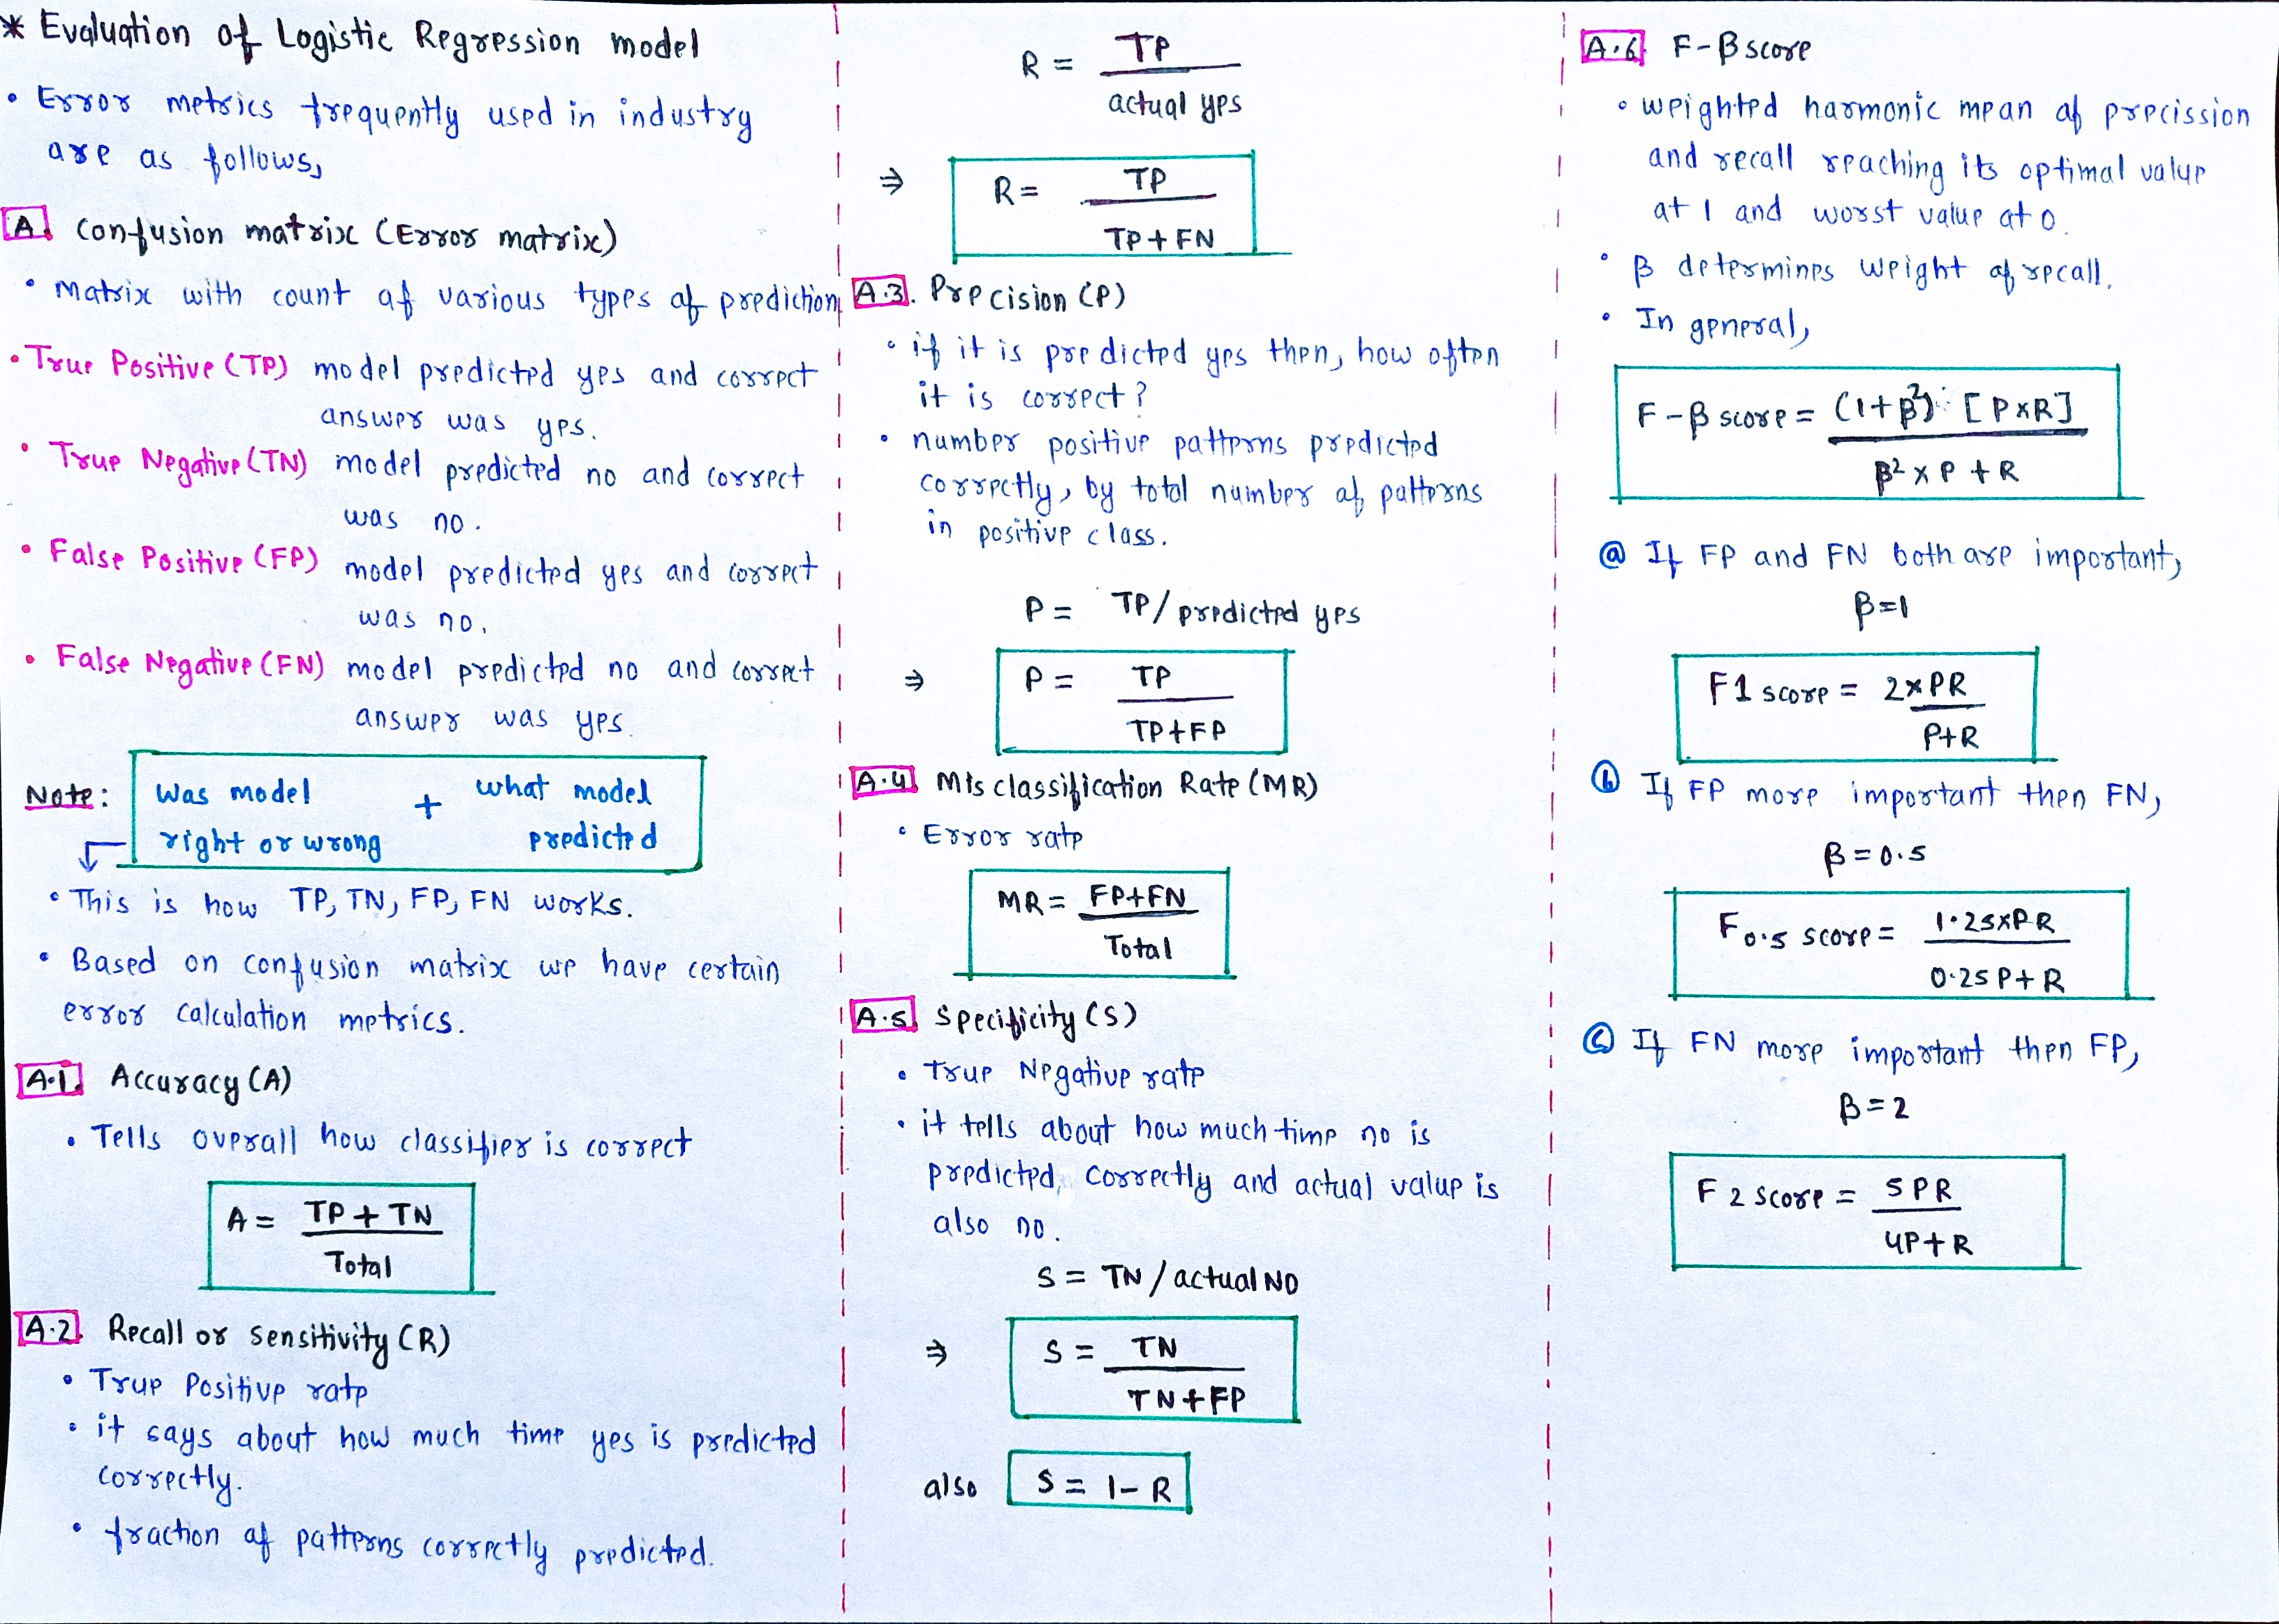 * Evaluation of Logistic Regression model
• Error metrics frequently used in industry
are as follows,
A. Confusion matrix (Error matrix)
• matrix with count of various types of prediction
• True Positive (TP) model predicted yes and correct
answer was yes.
• True Negative (TN) model predicted no and correct
was no.
• False Positive (FP) model predicted yes and correct
was no.
• False Negative (FN) model predicted no and correct
answer was yes.
Note: Was model + what model
right or wrong predicted
• This is how TP, TN, FP, FN works.
• Based on confusion matrix we have certain
error calculation metrics.
A.1. Accuracy (A)
• Tells overall how classifier is correct
A = TP + TN
Total
A.2. Recall or sensitivity (R)
• True Positive rate
• it says about how much time yes is predicted
correctly.
• fraction of patterns correctly predicted.
R = TP
actual yes
⇒ R = TP
TP + FN
A.3. Precision (P)
• if it is predicted yes then, how often
it is correct?
• number positive patterns predicted
correctly, by total number of patterns
in positive class.
P = TP / predicted yes
⇒ P = TP
TP+FP
A.4. Misclassification Rate (MR)
• Error rate
MR = FP+FN
Total
A.5. Specificity (S)
• True Negative rate
• it tells about how much time no is
predicted, correctly and actual value is
also no.
S = TN / actual NO
⇒ S = TN
TN + FP
also S = 1 - R
A.6. F-β score
• weighted harmonic mean of precission
and recall reaching its optimal value
at 1 and worst value at 0.
• β determines weight of recall.
• In general,
F-β score = (1+β²) [P×R]
β² × P + R
ⓐ If FP and FN both are important,
β=1
F1 score = 2×PR
P+R
ⓑ If FP more important then FN,
β = 0.5
F0.5 score = 1.25×PR
0.25P+R
ⓒ If FN more important then FP,
β = 2
F2 score = 5PR
4P+R